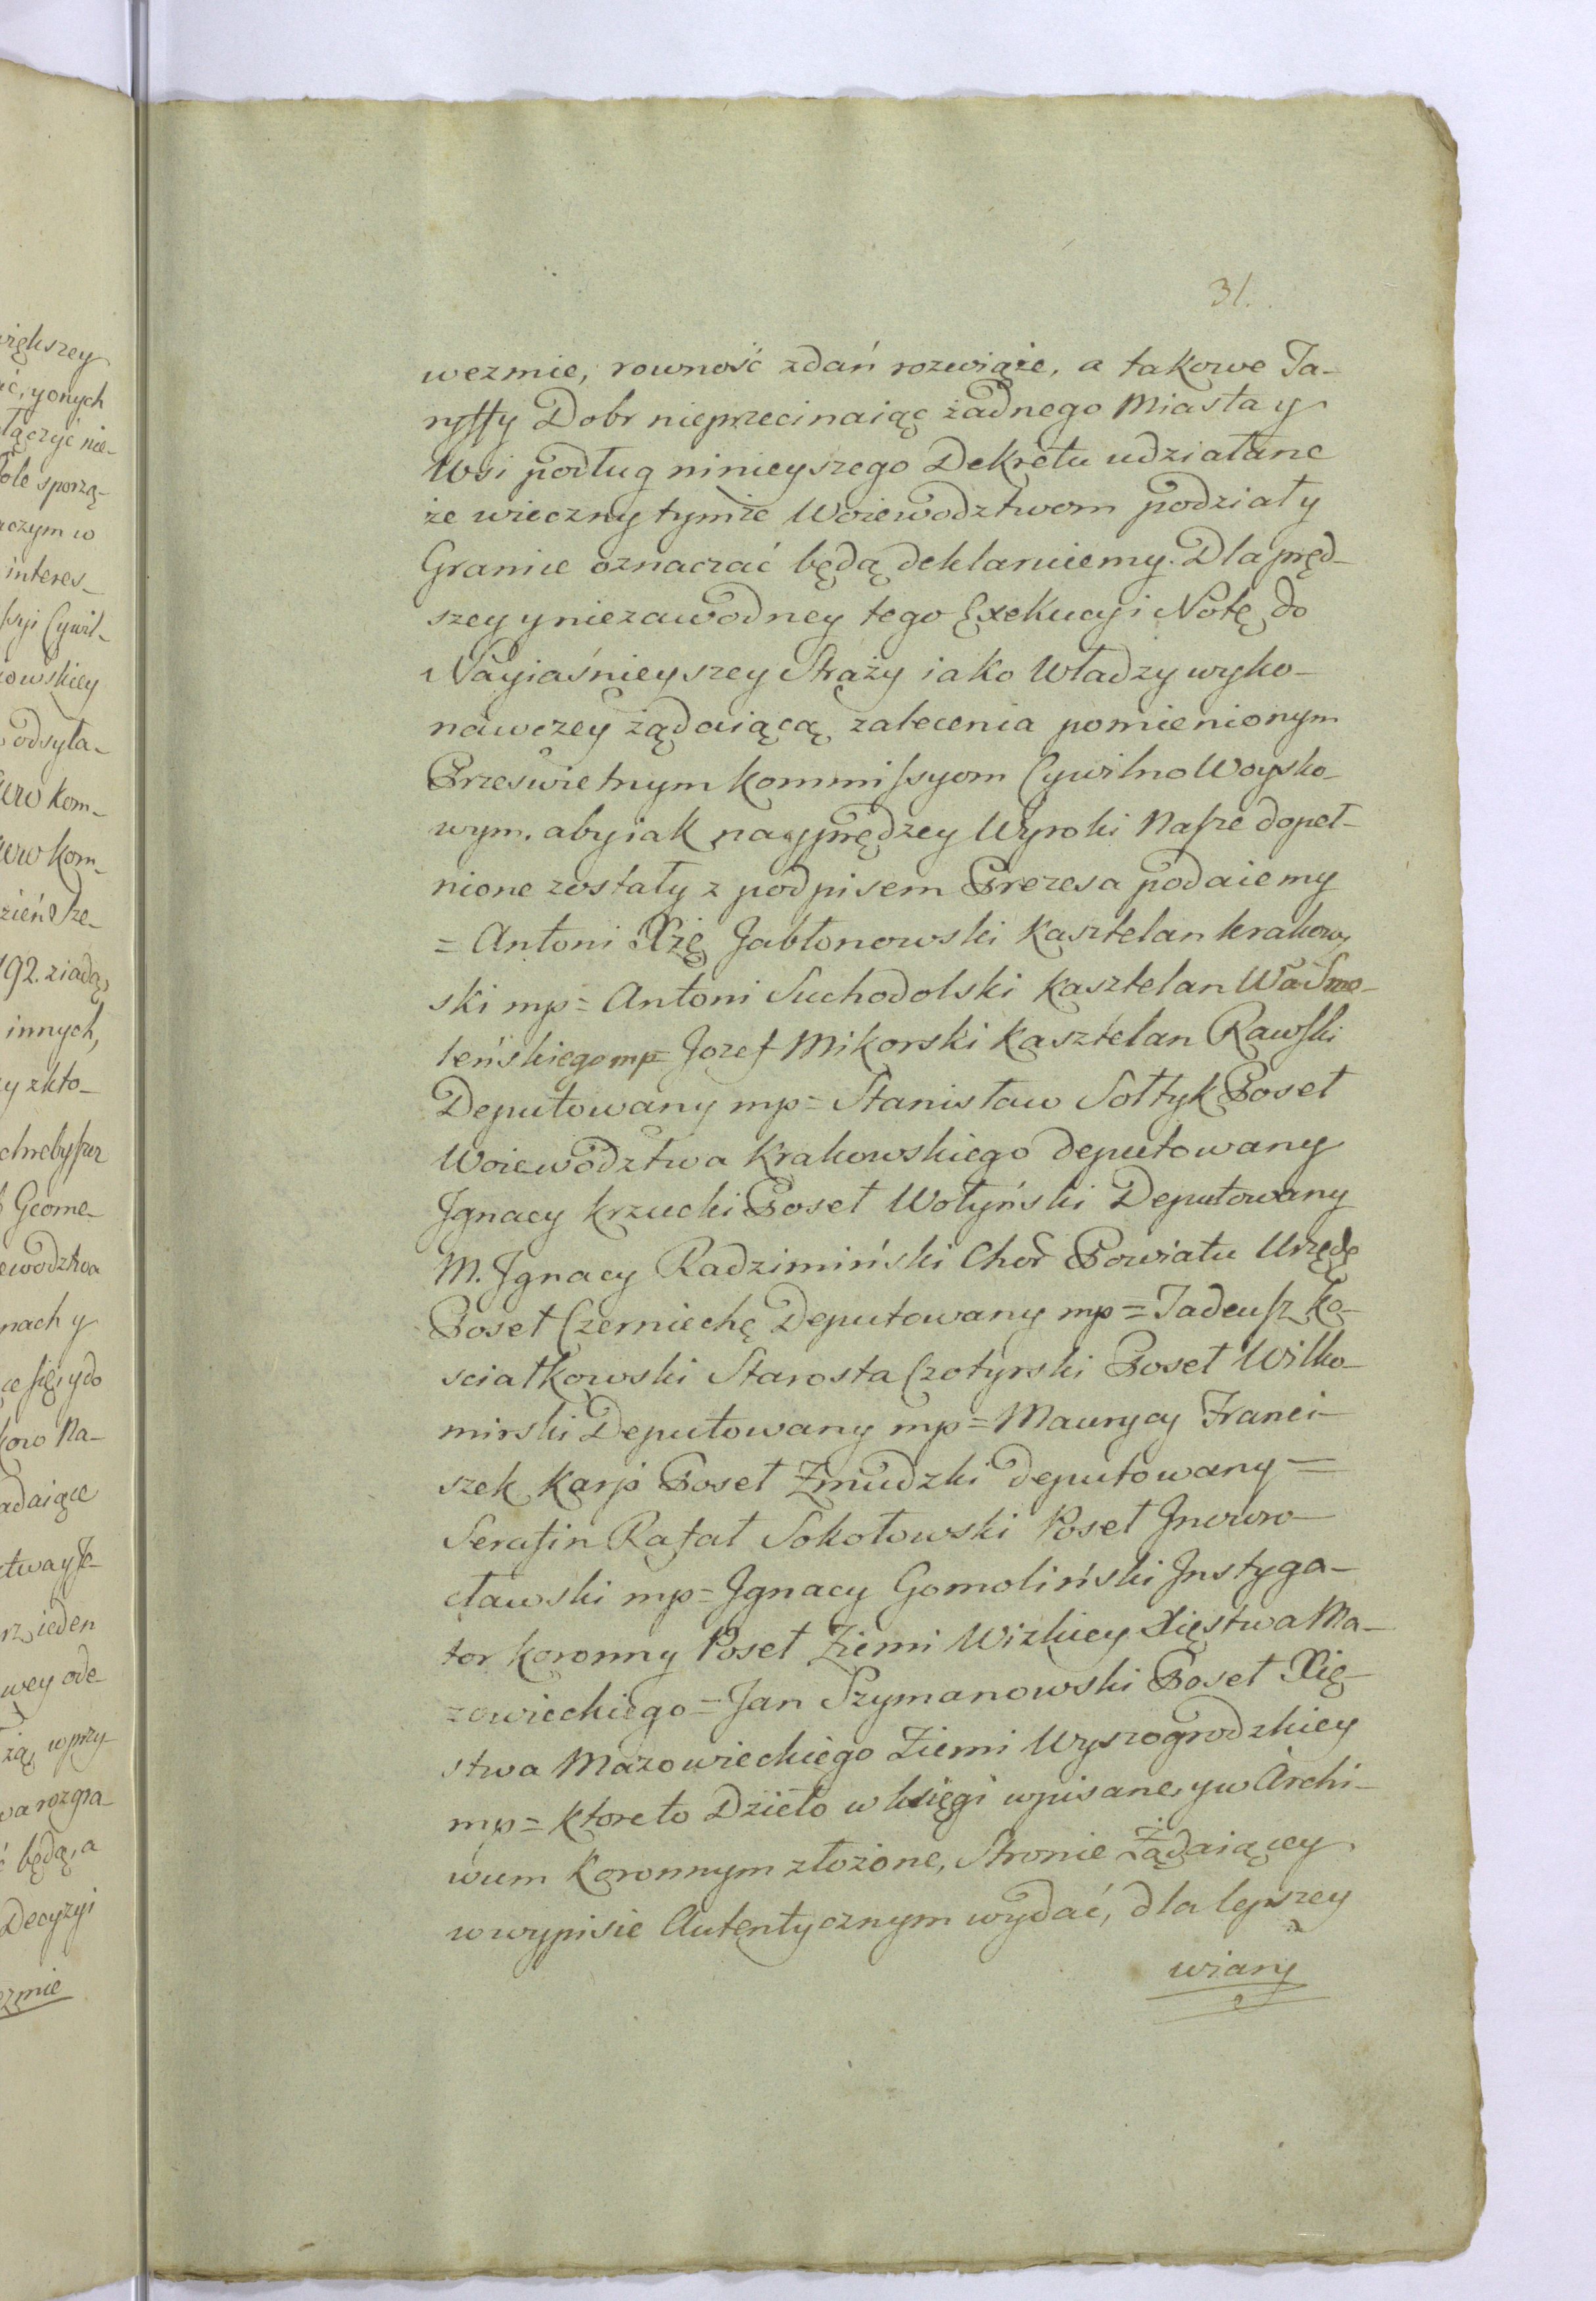 31.
wezmie, rowność zdań rozwiąże, a takowe Ta-
ryffy Dobr nieprzecinaiąc żadnego Miasta y
Wsi podług ninieyszego Dekretu udziałane
że wieczny tymże Woiewodztwom podziały
Granic oznaczać będą deklaruiemy. Dla pręd-
szey y niezawodney tego Exekucyi Notę do
Nayiaśnieyszey Straży iako Władzy wyko-
nawczey żądaiącą zalecenia pomienionym
Przeswietnym Kommissyom Cywilno Woysko-
wym. aby iak nayprędzey Wyroki Nasze dopeł-
nione zostały z podpisem Prezesa podaiemy
= Antoni Xżę Jabłonowski Kasztelan krakow
ski mp = Antoni Suchodolski Kasztelan Wa Smo-
leńskiego mp = Jozef Mikorski Kasztelan Rawski
Deputowany mp = Stanisław Sołtyk Poseł
Woiewodztwa Krakowskiego deputowany
Jgnacy Krzucki Poseł Wołyński Deputowany
M. Jgnacy Radzimiński Chor Powiatu Urzęde
Poseł Czerniechę Deputowany mp = Tadeusz Ko-
sciałkowski Starosta Czotyrski Poseł Wiłko-
mirski Deputowany mp = Maurycy Franci-
szek Karp Poseł Zmudzki deputowany =
Serafin Rafał Sokołowski Poseł Jnowro-
cławski mp = Jgnacy Gomoliński Jnstyga-
tor Koronny Poseł Ziemi Wizkiey Xięstwa Ma-
zowieckiego = Jan Szymanowski Poseł Xię-
stwa Mazowieckiego Ziemi Wyszogrodzkiey
mp = Ktore to Dzieło w księgi wpisane, y w Archi-
wum Koronnym złożone, Stronie Żądaiącey
w wypisie Autentycznym wydać, dla lepszey
wiary